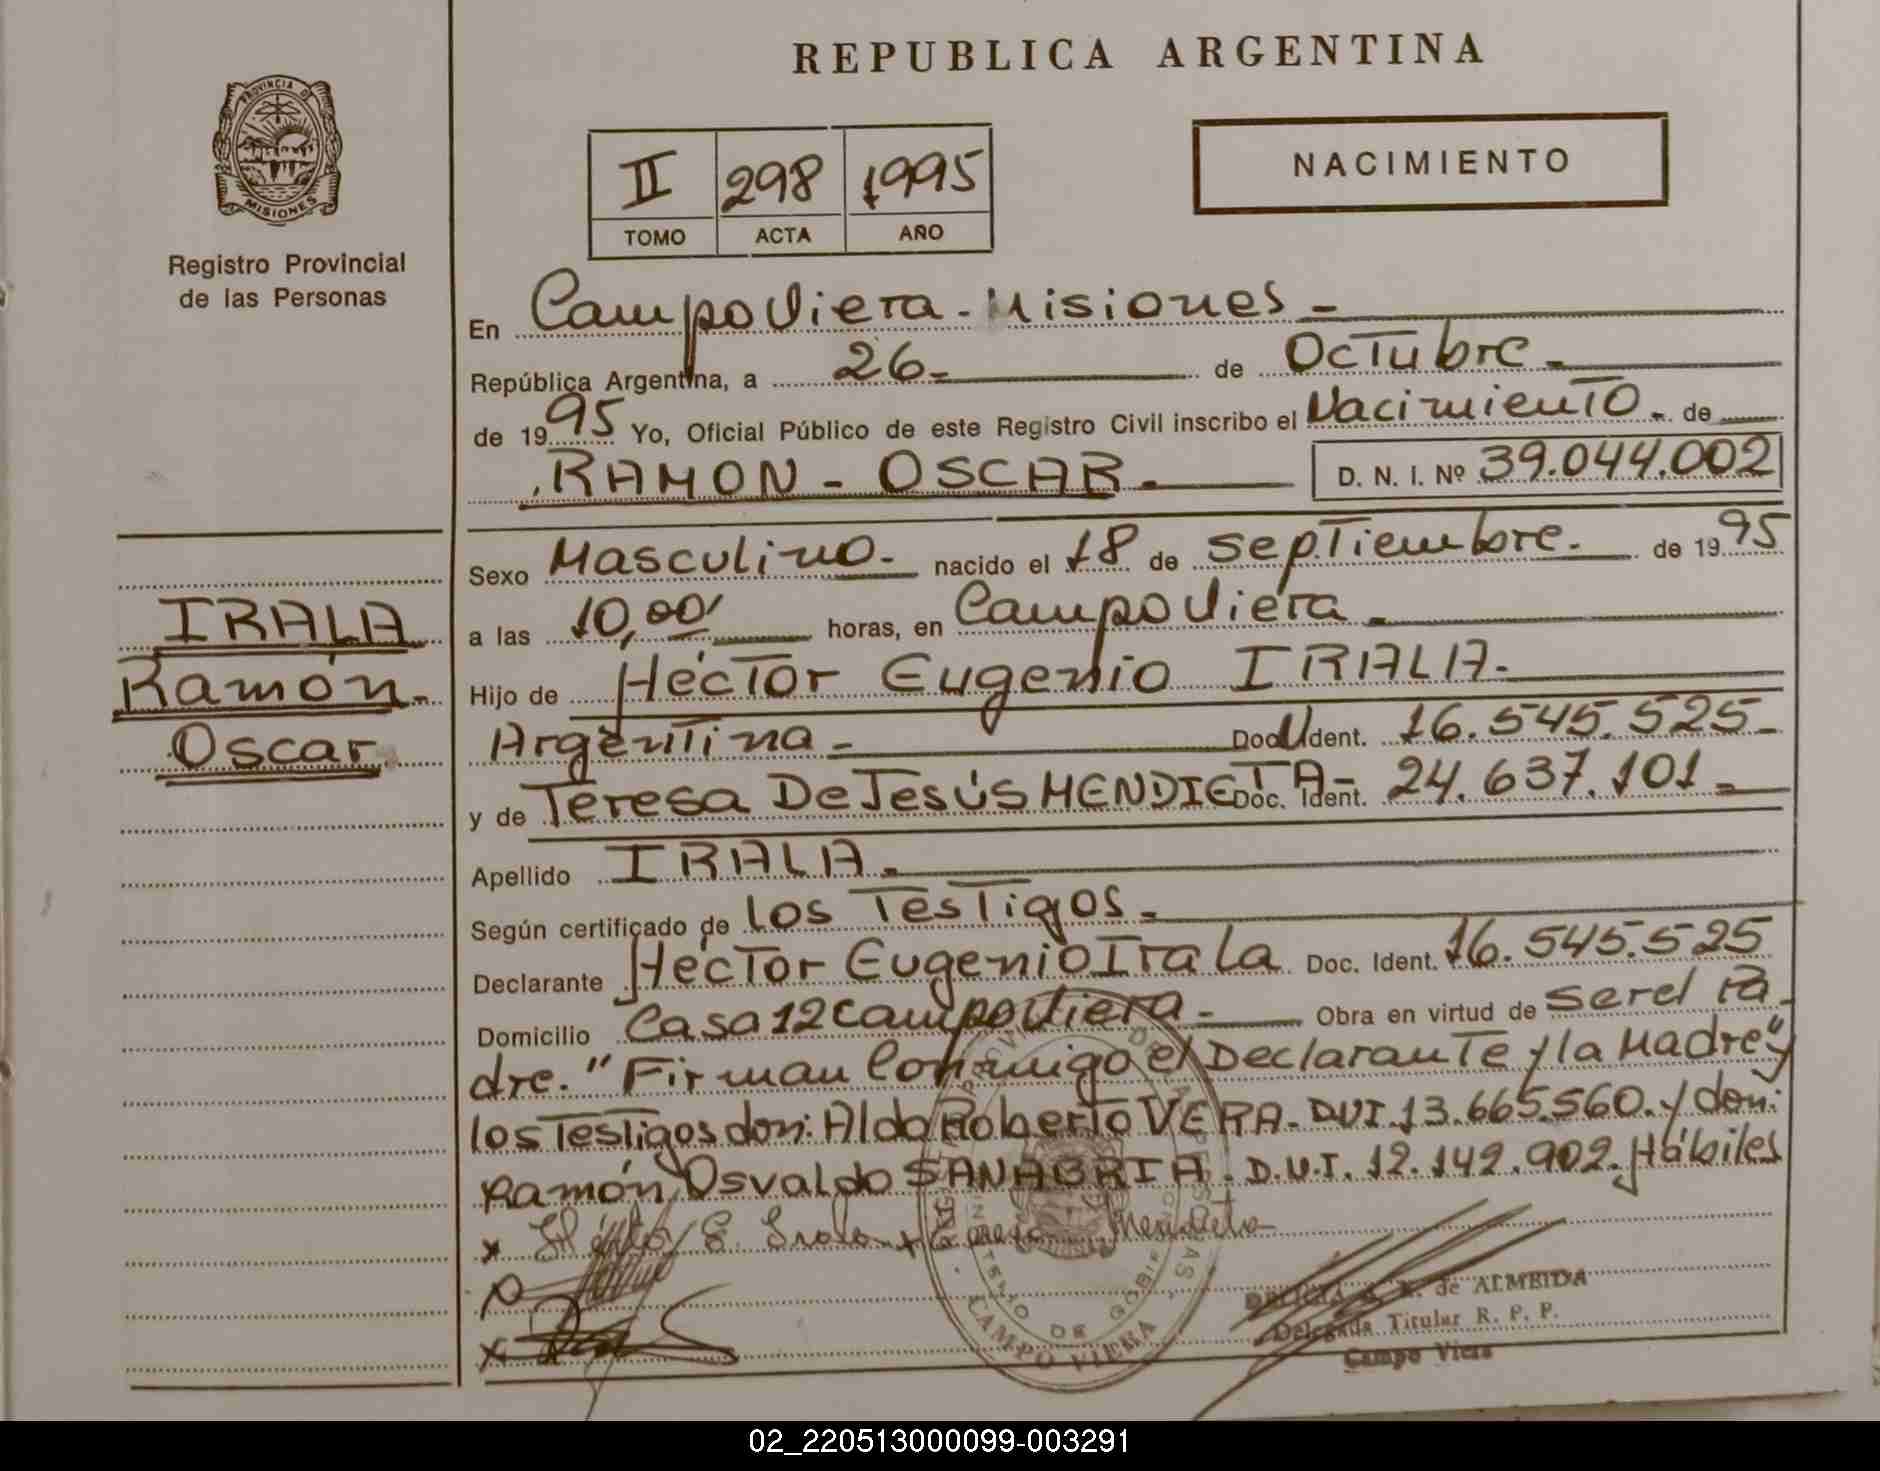 REPUBLICA ARGENTINA
PROVINCIA D
MISIONES
Registro Provincial
de las Personas
II 298 1995
TOMO ACTA AÑO
NACIMIENTO
En Campo Viera - Misiones -
República Argentina, a 26 - de Octubre -
de 1995 Yo, Oficial Público de este Registro Civil inscribo el Nacimiento - de
RAMON - OSCAR - D. N. I. Nº 39.044.002
Sexo Masculino - nacido el 18 de septiembre - de 1995
a las 10,00' horas, en Campo Viera -
Hijo de Héctor Eugenio IRALA -
Argentina - Doc. Ident. 16.545.525 -
y de Teresa De Jesús MENDIETA - Doc. Ident. 24.637.101 -
Apellido IRALA -
Según certificado de los Testigos -
Declarante Héctor Eugenio Irala Doc. Ident. 16.545.525
Domicilio Casa 12 Campo Viera - Obra en virtud de ser el Pa-
dre. "Firman Conmigo el Declarante y la Madre" y
los Testigos don: Aldo Roberto VERA - D.N.I. 13.665.560. y don:
Ramón Osvaldo SANABRIA - D.N.I. 12.142.902. Hábiles
IRALA
Ramón -
Oscar
x Héctor E. Irala + Teresa Mendieta
x
CAMPO VIERA
de ALMEIDA
Delegada Titular R. P. P.
Campo Viera
02_220513000099-003291